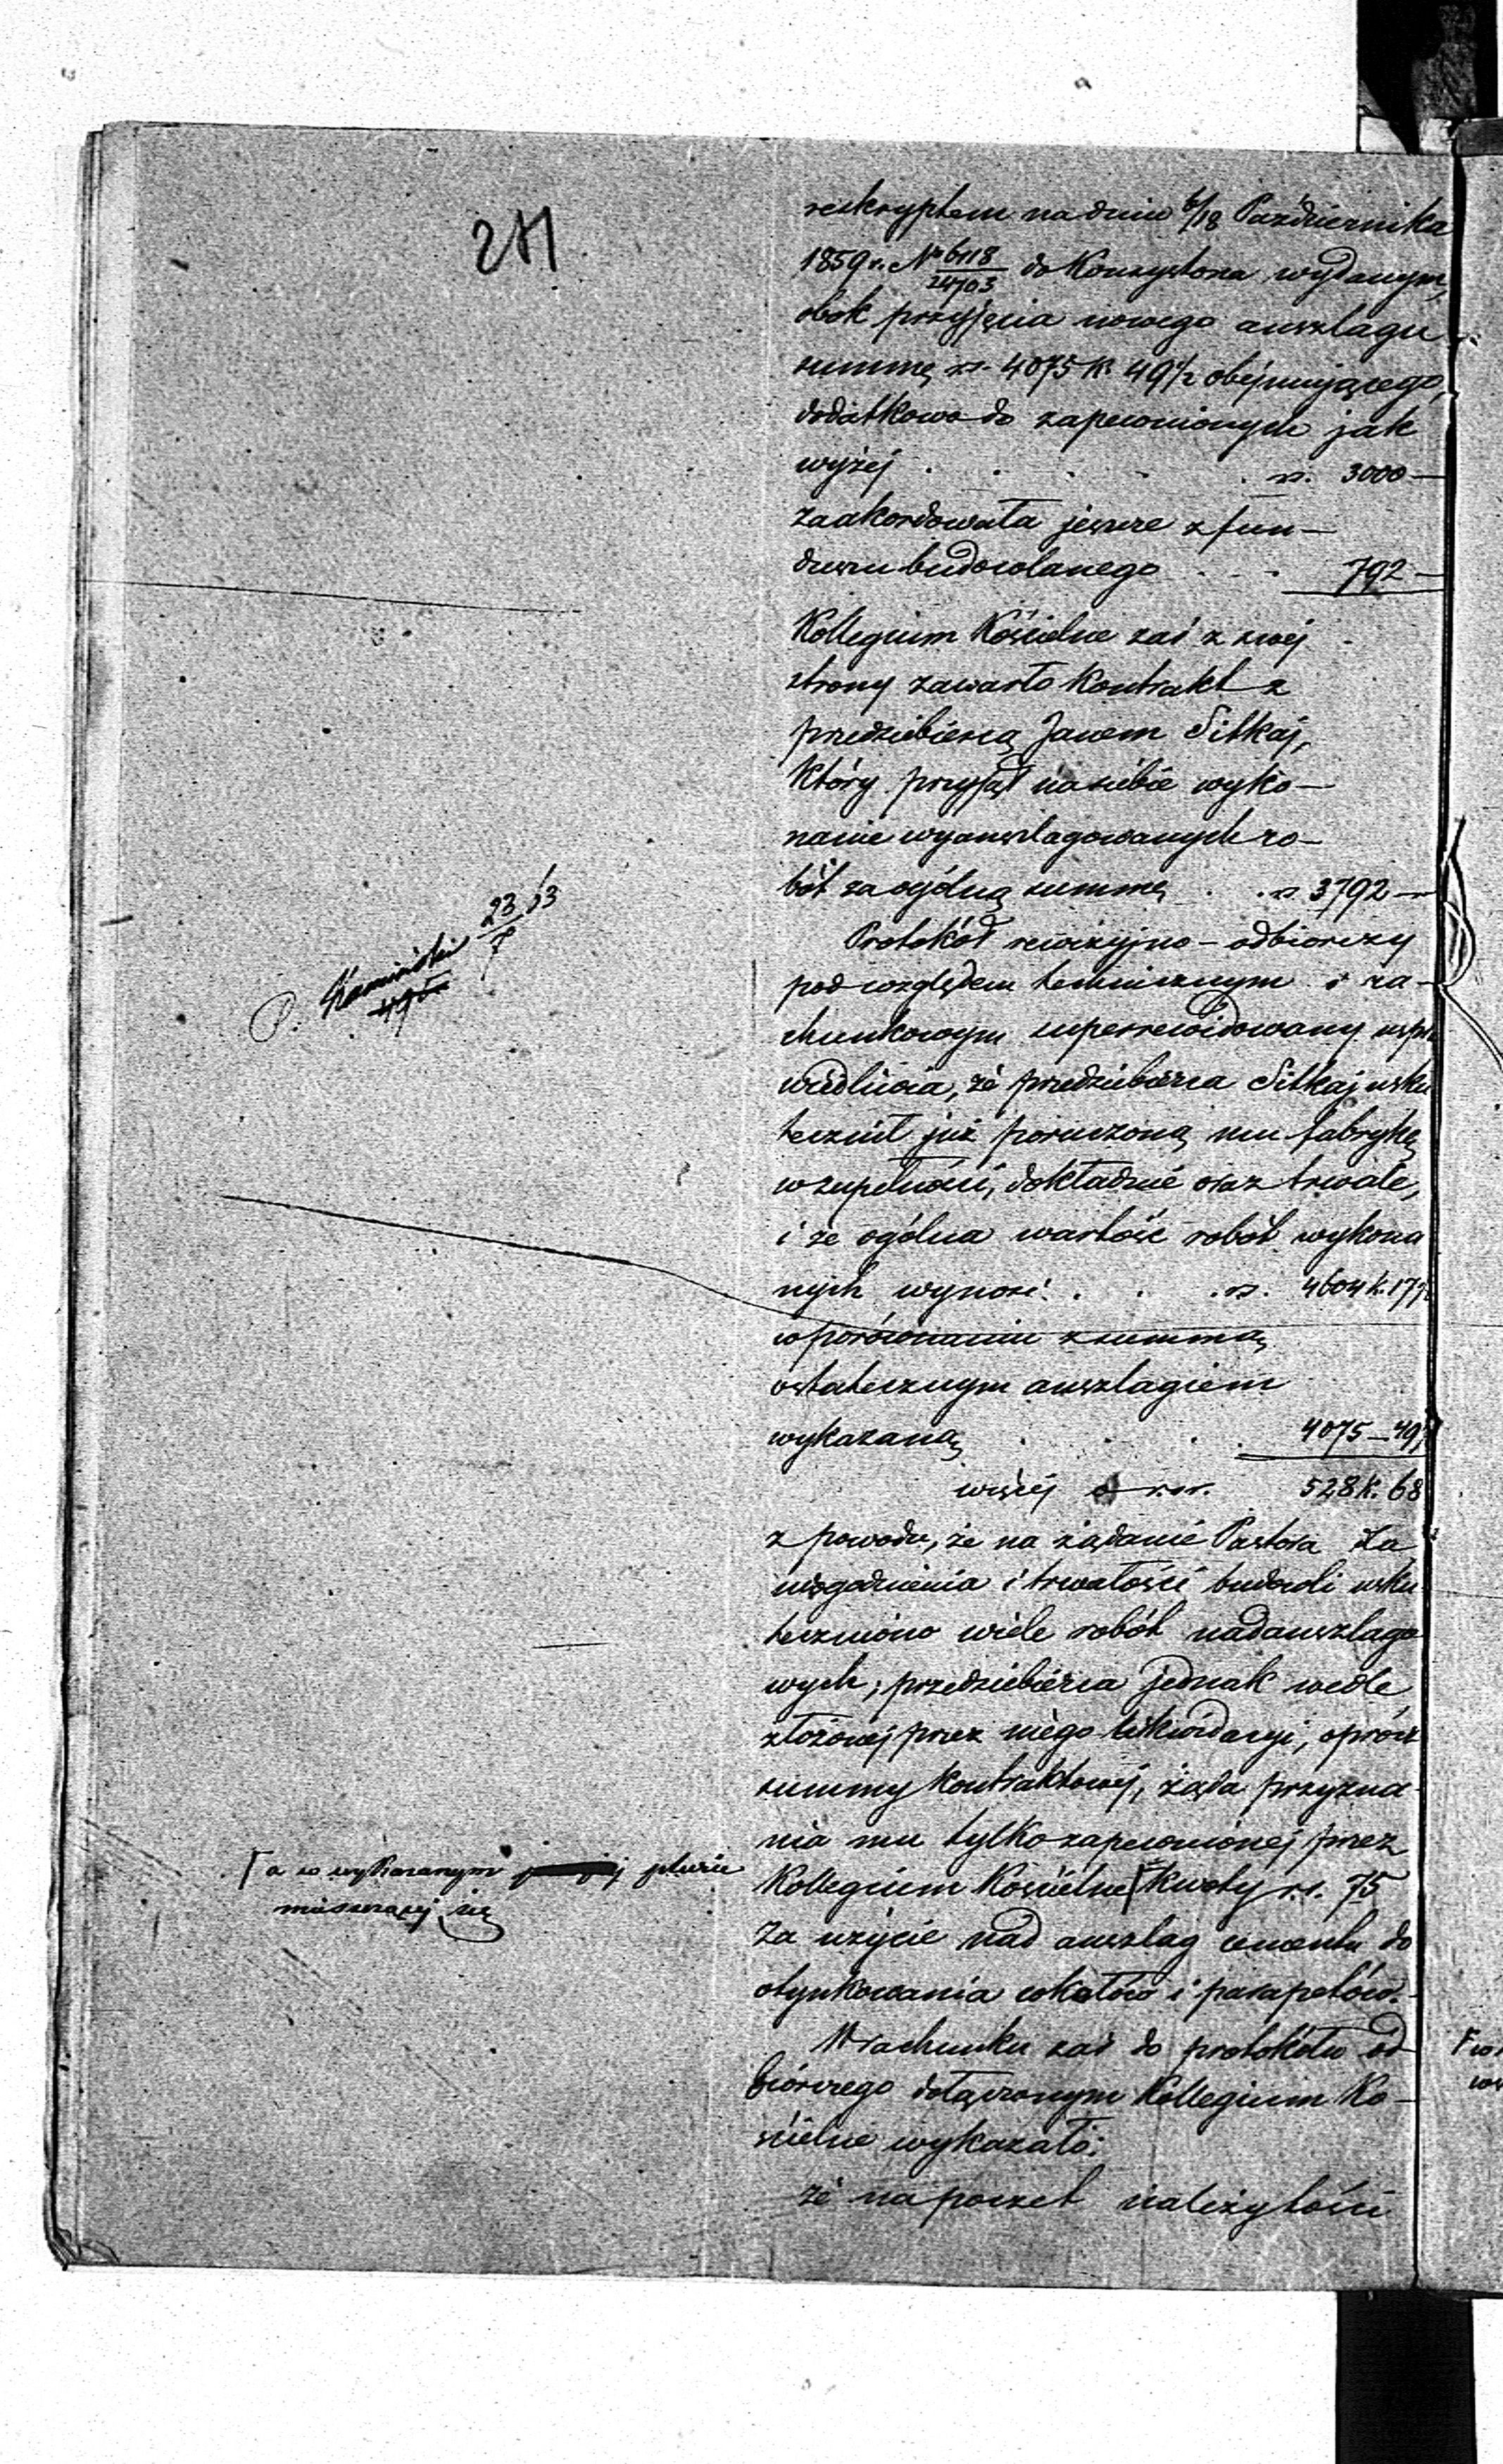 271
reskryptem na dniu 6/18 Października
1859 r. No 6118/24703 do Konsystorza wydanym,
obok przyjęcia nowego anszlagu
summę rs. 4075 k. 49 1/2 obejmującego,
dodatkowo do zapewnionych jak
wyżej . . . . . rs. 3000 —
zaakordowała jeszcze z fun—
duszu budowlanego . . . 792 —
Kollegium Kościelne zaś z swej
strony zawarło Kontrakt z
przedziebiercą Janem Sitkaj,
który przyjął na siebie wyko—
nanie wyanszlagowanych ro—
bót za ogólną summę . . rs. 3792 —
Protokół rewizyjno — odbiorczy
pod względem technicznym i ra—
chunkowym superrewidowany uspra
wiedliwia, że przedziebierca Sitkaj usku
tecznił już poruczoną mu fabrykę
w zupełności, dokładnie oraz trwale,
i że ogólna wartość robót wykona
nych wynosi . . . rs. 4604 k. 17 1/2
w porównaniu z summą
ostatecznym anszlagiem
wykazaną . . . 4075 — 49 1/2
więcej o rsr. 528 k. 68
z powodu, że na żądanie Pastora dla
uwygodnienia i trwałości budowli usku
teczniono wiele robót nadanszlago
wych; przedziebierca jednak wedle
złożonej przez niego likwidacyi, oprócz
summy kontraktowej, żąda przyzna
nia mu tylko zapewnionej przez
Kollegium Kościelne kwoty r.s. 75
za użycie nad anszlag cementu do
otynkowania cokołów i parapetów.—
W rachunku zaś do protokółu od
biorczego dołączonym Kollegium Ko—
ścielne wykazało:
że na poczet należytości
P. Kamiński 23/7 63
a w wykazanym plusie
mieszczącej się